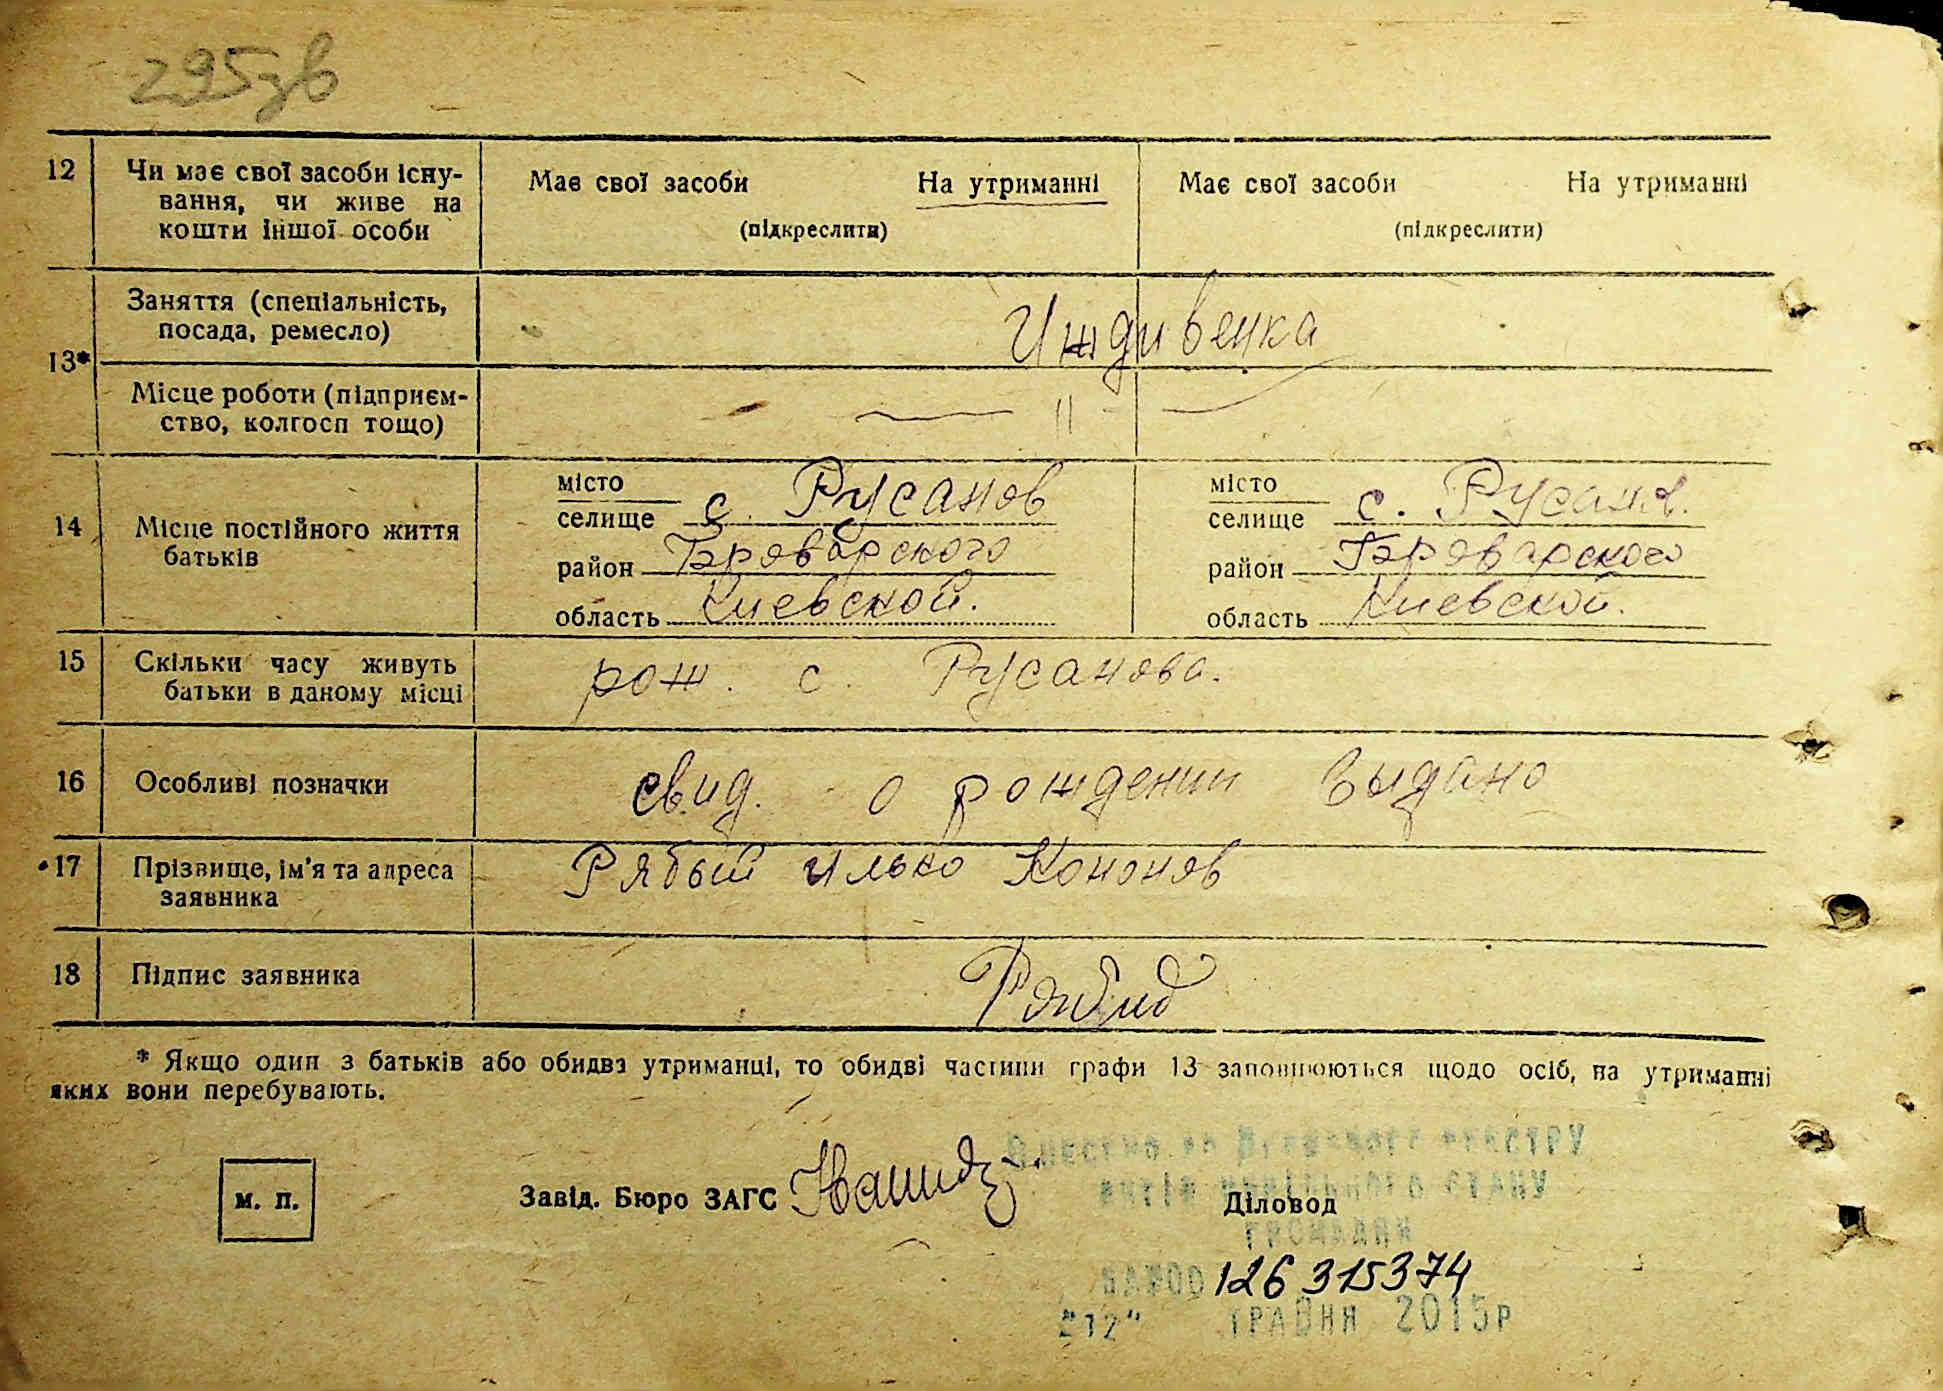 295зв
12 Чи має свої засоби існу-
вання, чи живе на
кошти іншої особи
Має свої засоби На утриманні
(підкреслити)
Має свої засоби На утриманні
(підкреслити)
13*
Заняття (спеціальність,
посада, ремесло)
Иждивенка
Місце роботи (підприєм-
ство, колгосп тощо)
— 〃 —
14 Місце постійного життя
батьків
місто
селище с. Русанов
район Броварского
область Киевской.
місто
селище с. Русанов.
район Броварского
область Киевской.
15 Скільки часу живуть
батьки в даному місці
рож. с. Русанова.
16 Особливі позначки
свид. о рождении выдано
17 Прізвище, ім'я та адреса
заявника
Рябый Илько Кононов
18 Підпис заявника
* Якщо один з батьків або обидва утриманці, то обидві частини графи 13 заповнюються щодо осіб, на утриманні
яких вони перебувають.
м. п.
Завід. Бюро ЗАГС
Діловод
реєстру
актів цивільного стану
громадян
126315374
"12" травня 2015р